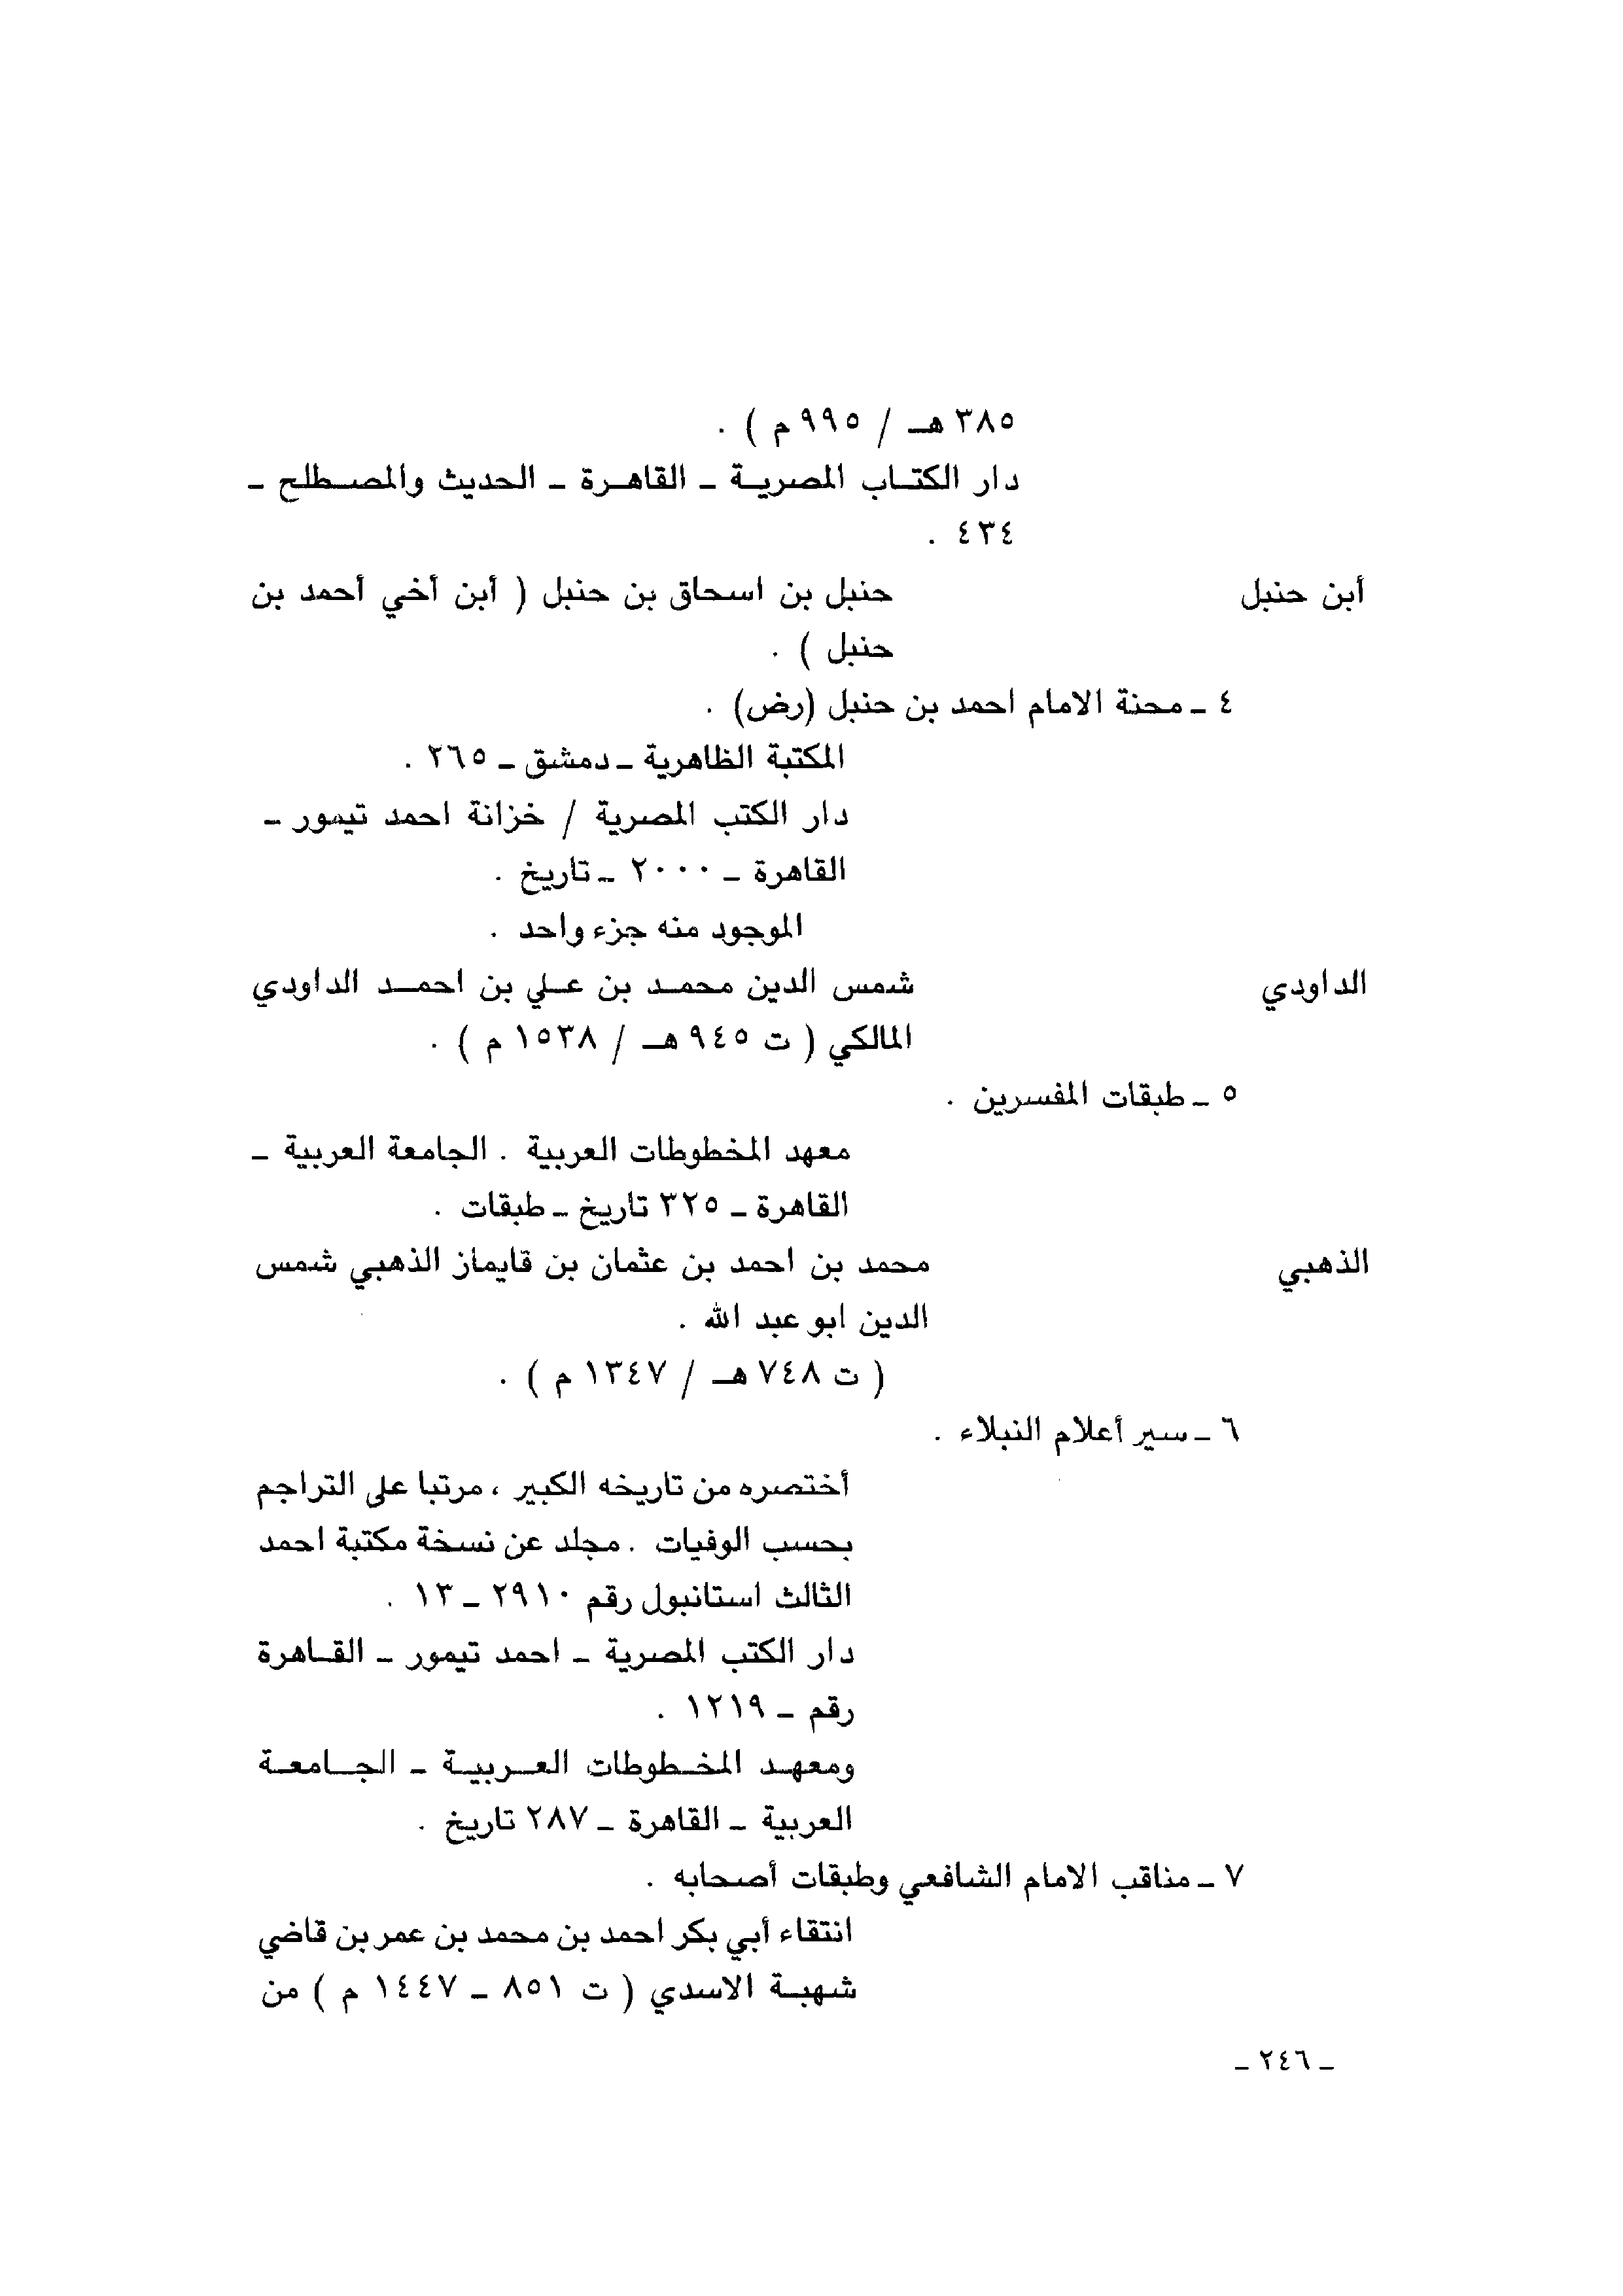 ٣٨٥ هـ / ٩٩٥ م ) .
دار الكتاب المصرية ـ القاهرة ـ الحديث والمصطلح ـ
٤٣٤ .
أبن حنبل حنبل بن اسحاق بن حنبل ( أبن أخي أحمد بن
حنبل ) .
٤ ـ محنة الامام احمد بن حنبل (رض) .
المكتبة الظاهرية ـ دمشق ـ ٢٦٥ .
دار الكتب المصرية / خزانة احمد تيمور ـ
القاهرة ـ ٢٠٠٠ ـ تاريخ .
الموجود منه جزء واحد .
الداودي شمس الدين محمد بن علي بن احمد الداودي
المالكي ( ت ٩٤٥ هـ / ١٥٣٨ م ) .
٥ ـ طبقات المفسرين .
معهد المخطوطات العربية . الجامعة العربية ـ
القاهرة ـ ٣٢٥ تاريخ ـ طبقات .
الذهبي محمد بن احمد بن عثمان بن قايماز الذهبي شمس
الدين ابو عبد الله .
( ت ٧٤٨ هـ / ١٣٤٧ م ) .
٦ ـ سير أعلام النبلاء .
أختصره من تاريخه الكبير ، مرتبا على التراجم
بحسب الوفيات . مجلد عن نسخة مكتبة احمد
الثالث استانبول رقم ٢٩١٠ ـ ١٣ .
دار الكتب المصرية ـ احمد تيمور ـ القاهرة
رقم ـ ١٢١٩ .
ومعهد المخطوطات العربية ـ الجامعة
العربية ـ القاهرة ـ ٢٨٧ تاريخ .
٧ ـ مناقب الامام الشافعي وطبقات أصحابه .
انتقاء أبي بكر احمد بن محمد بن عمر بن قاضي
شهبة الاسدي ( ت ٨٥١ ـ ١٤٤٧ م ) من
ـ ٢٤٦ ـ